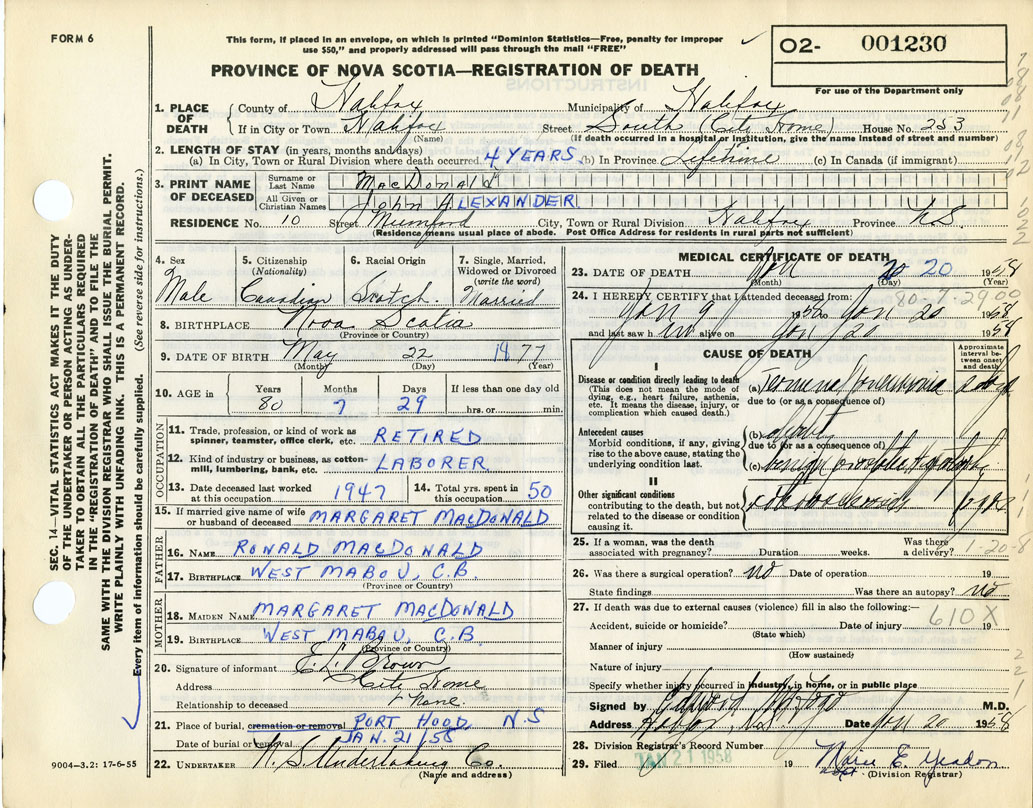 FORM 6
This form, if placed in an envelope, on which is printed "Dominion Statistics—Free, penalty for improper
use $50," and properly addressed will pass through the mail "FREE"
02- 001230
For use of the Department only
PROVINCE OF NOVA SCOTIA—REGISTRATION OF DEATH
SEC. 14—VITAL STATISTICS ACT MAKES IT THE DUTY
OF THE UNDERTAKER OR PERSON ACTING AS UNDER-
TAKER TO OBTAIN ALL THE PARTICULARS REQUIRED
IN THE "REGISTRATION OF DEATH" AND TO FILE THE
SAME WITH THE DIVISION REGISTRAR WHO SHALL ISSUE THE BURIAL PERMIT.
WRITE PLAINLY WITH UNFADING INK. THIS IS A PERMANENT RECORD.
Every item of information should be carefully supplied. (See reverse side for instructions.)
1. PLACE OF DEATH County of Halifax Municipality of Halifax
If in City or Town Halifax Street South (City Home) House No. 253
(Name) (If death occurred in a hospital or institution, give the name instead of street and number)
2. LENGTH OF STAY (in years, months and days)
(a) In City, Town or Rural Division where death occurred 4 YEARS (b) In Province Lifetime (c) In Canada (if immigrant)
3. PRINT NAME OF DECEASED Surname or Last Name MacDonald
All Given or Christian Names John ALEXANDER
RESIDENCE No. 10 Street Mumford City, Town or Rural Division Halifax Province NS
(Residence means usual place of abode. Post Office Address for residents in rural parts not sufficient)
4. Sex Male
5. Citizenship (Nationality) Canadian
6. Racial Origin Scotch.
7. Single, Married, Widowed or Divorced (write the word) Married
8. BIRTHPLACE Nova Scotia
(Province or Country)
9. DATE OF BIRTH May 22 1877
(Month) (Day) (Year)
10. AGE in Years 80 Months 7 Days 29 If less than one day old hrs. or min.
OCCUPATION
11. Trade, profession, or kind of work as spinner, teamster, office clerk, etc. RETIRED
12. Kind of industry or business, as cotton-mill, lumbering, bank, etc. LABORER
13. Date deceased last worked at this occupation 1947
14. Total yrs. spent in this occupation 50
15. If married give name of wife or husband of deceased MARGARET MACDONALD
FATHER
16. NAME RONALD MACDONALD
17. BIRTHPLACE WEST MABOU, C.B.
(Province or Country)
MOTHER
18. MAIDEN NAME MARGARET MACDONALD
19. BIRTHPLACE WEST MABOU, C.B
(Province or Country)
20. Signature of informant E. L. Brown
Address City Home
Relationship to deceased None.
21. Place of burial, cremation or removal PORT HOOD, N.S
Date of burial or removal JAN. 21/58
22. UNDERTAKER N. S. Undertaking Co.
(Name and address)
9004—3.2: 17-6-55
MEDICAL CERTIFICATE OF DEATH
23. DATE OF DEATH Jan 20 1958
(Month) (Day) (Year)
80-7-29 00
24. I HEREBY CERTIFY that I attended deceased from:
Jan 9 1958 to Jan 20 1958
and last saw him alive on Jan 20 1958
CAUSE OF DEATH
Approximate interval between onset and death
I
Disease or condition directly leading to death
(This does not mean the mode of dying, e.g., heart failure, asthenia, etc. It means the disease, injury, or complication which caused death.)
(a) Pneumonia
due to (or as a consequence of)
Antecedent causes
Morbid conditions, if any, giving rise to the above cause, stating the underlying condition last.
(b)
due to (or as a consequence of)
(c) benign prostatic
II
Other significant conditions
contributing to the death, but not related to the disease or condition causing it.
25. If a woman, was the death associated with pregnancy? Duration weeks. Was there a delivery?
1-20-8
26. Was there a surgical operation? no Date of operation 19
State findings Was there an autopsy? no
27. If death was due to external causes (violence) fill in also the following:—
610X
Accident, suicide or homicide? Date of injury 19
(State which)
Manner of injury
(How sustained)
Nature of injury
Specify whether injury occurred in industry, in home, or in public place
Signed by M.D.
Address Halifax, N.S. Date Jan 20 1958
28. Division Registrar's Record Number
29. Filed JAN 21 1958 19 Marie E.
(Division Registrar)